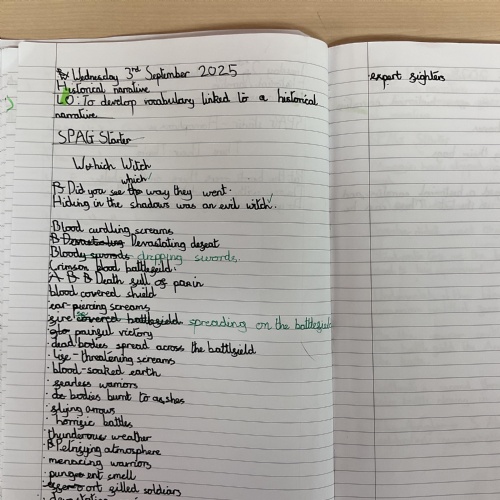 Wednesday 3rd September 2025
Historical narrative
LO: To develop vocabulary linked to a historical
narrative
SPAG Starter
Which Witch
which
Did you see the way they went.
Hiding in the shadows was an evil witch.
Blood curdling screams
Devastating defeat
Bloody swords dripping swords.
Crimson blood battlefeild.
Death full of pain
blood covered shield
ear-piercing screams
fire covered battlefield spreading on the battlefield
painful victory
dead bodies spread across the battlefield
life-threatening screams
blood-soaked earth
fearless warriors
bodies burnt to ashes
flying arrows
horrific battles
thunderous weather
Petrifying atmosphere
menacing warriors
pungent smell
effort filled soldiars
expert fighters